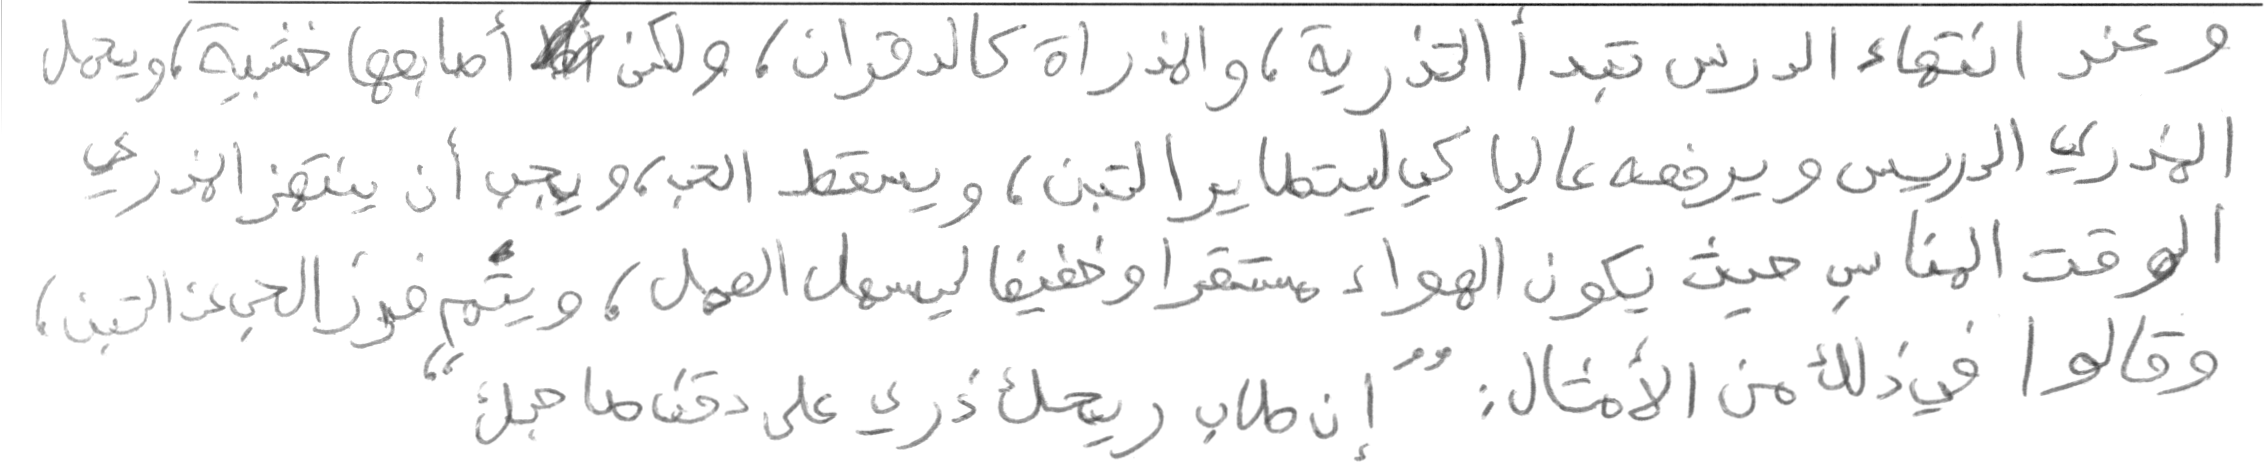 وعند انتهاء الدرس تبدأ التذرية، والمذراة كالدقران، ولكن أصابعها خشبية، ويحمل
المذري الدريس ويرفعه عاليا كي ليتطاير التبن، ويسقط الحب، ويجب أن ينتهز المذري
الوقت المناسب حيث يكون الهواء مستقرا وخفيفا ليسهل العمل، ويتم فرز الحب عن التبن،
وقالوا في ذلك من الأمثال: "إن طاب ريحك ذري على دقن صاحبك"